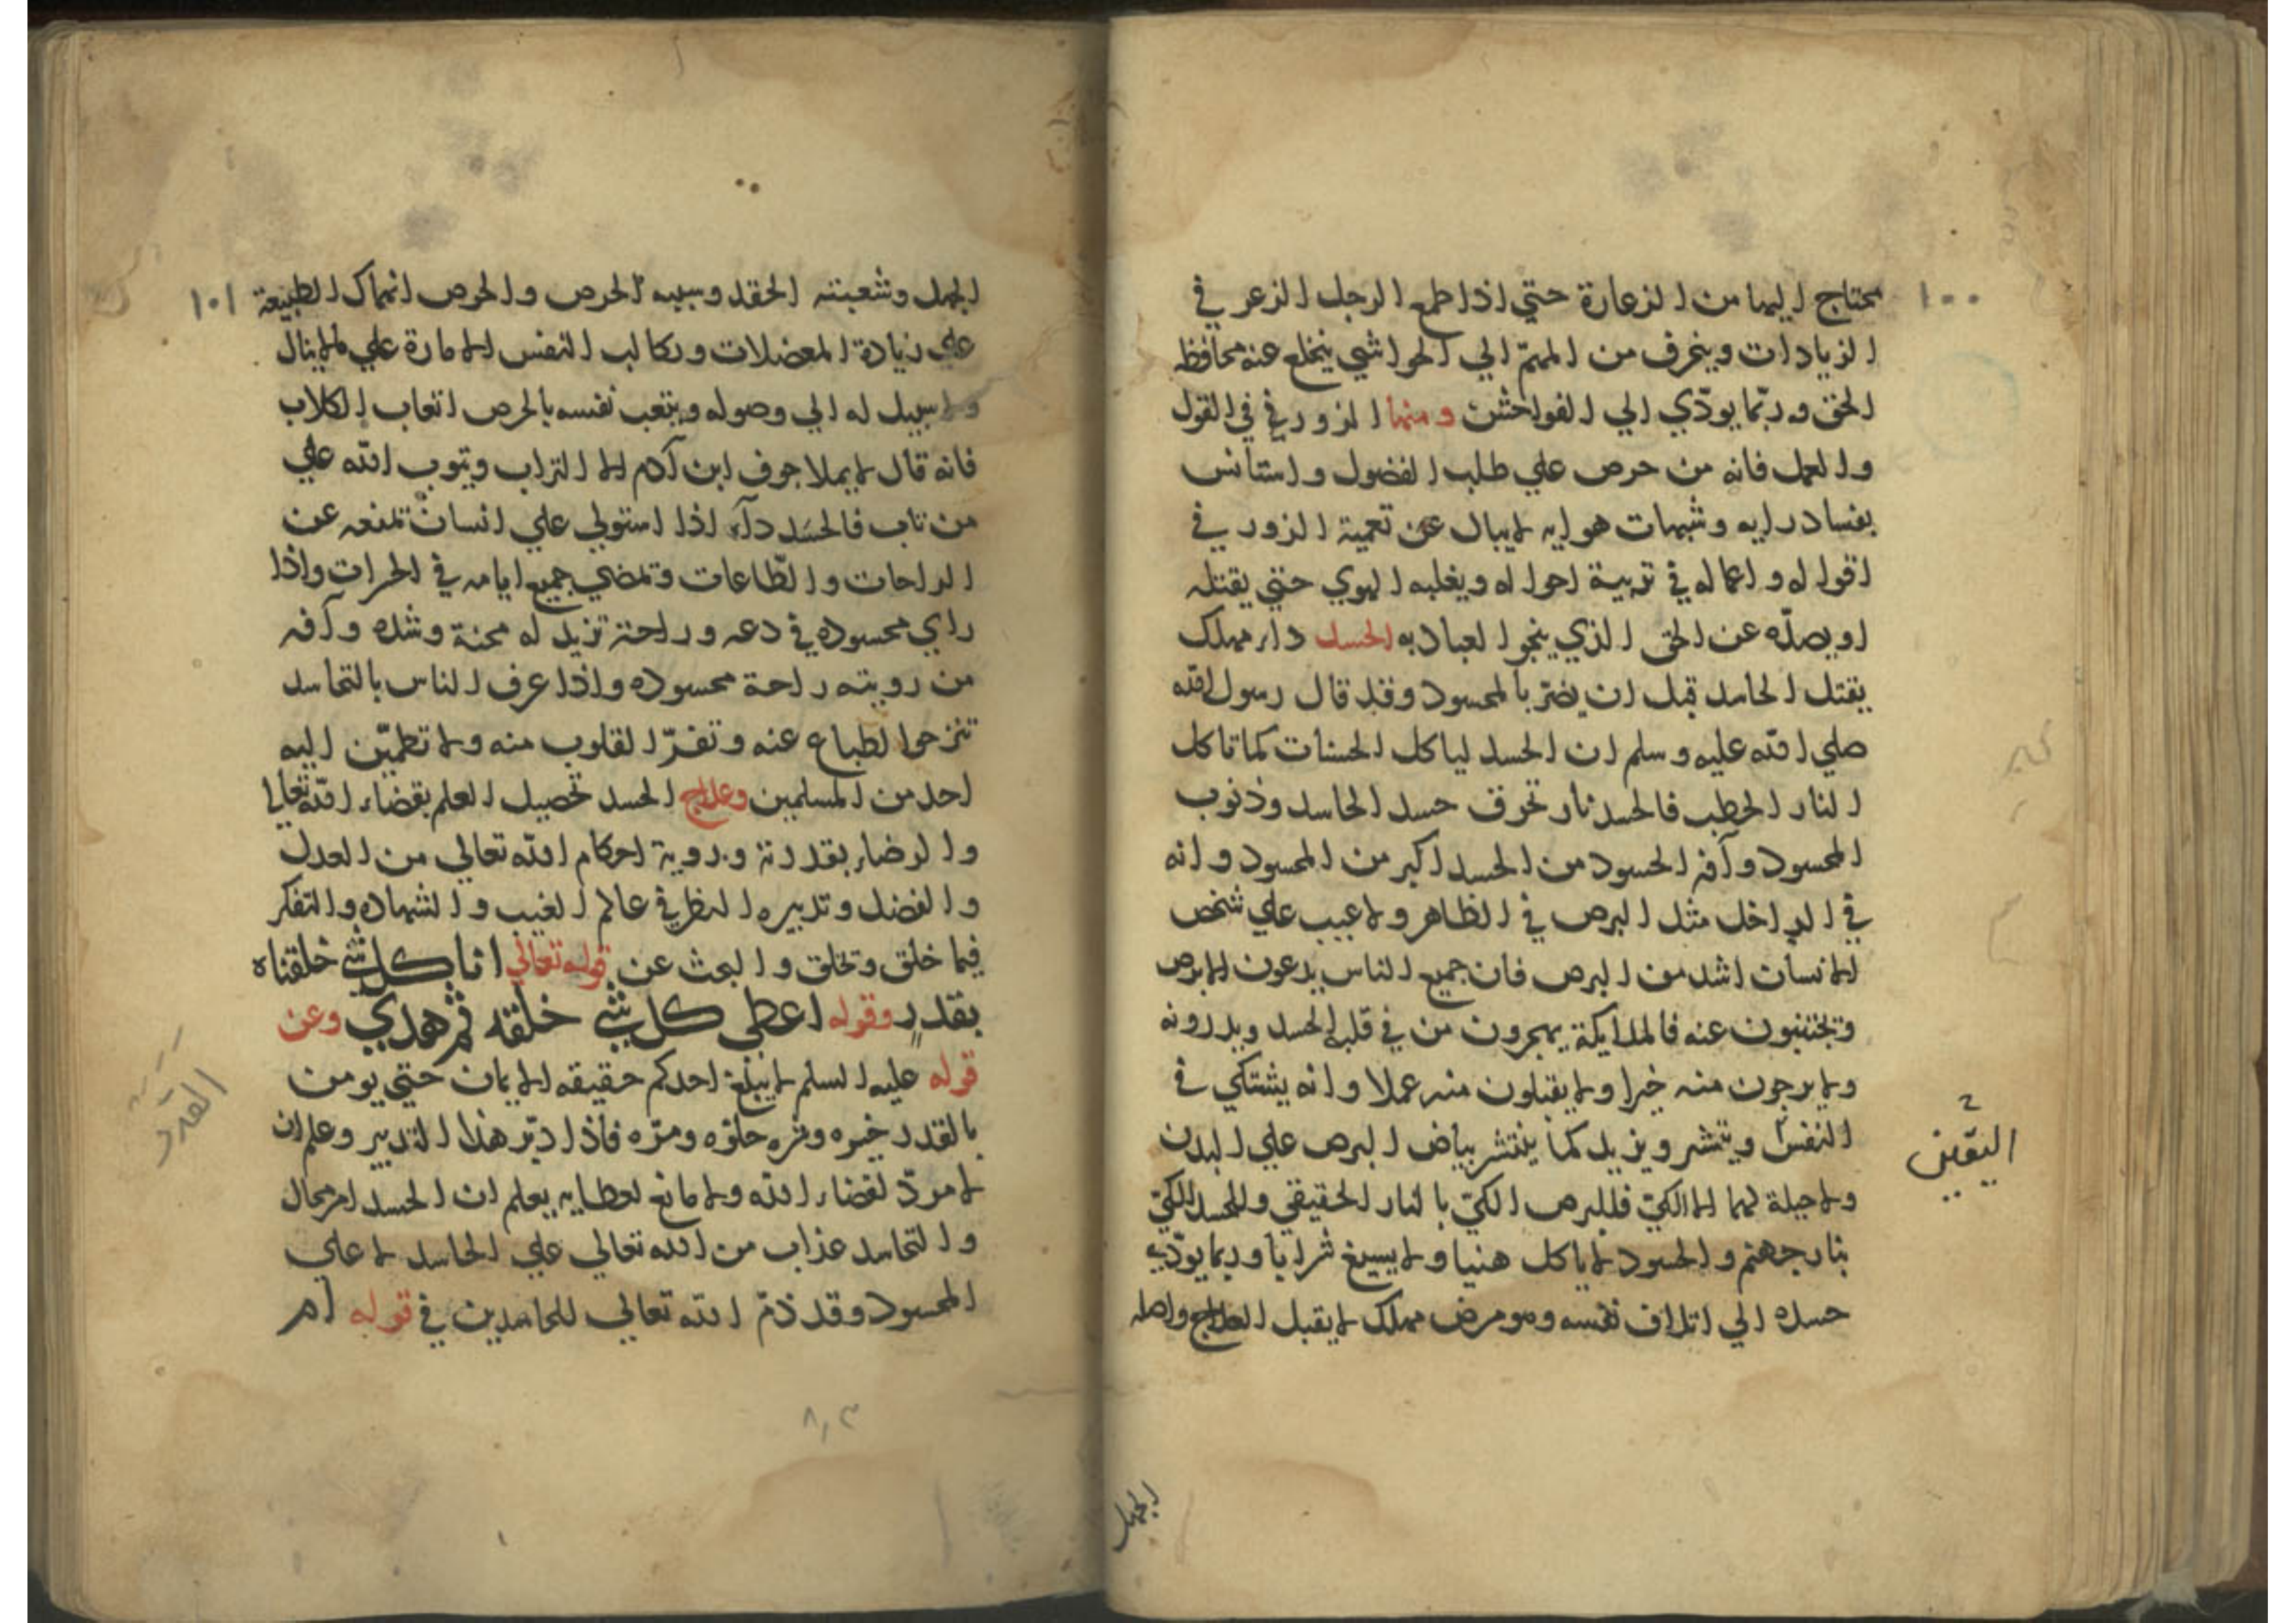 ١٠٠
محتاج اليها من الزعارة حتي اذا طمع الرجل الزعر في
الزيادات وينحرف من المهمّ الي الحواشي ينخلع عنه محافظه
الحق وربّما يودّي الي الفواحش ومنها الزور في القول
والعمل فانه من حرص علي طلب الفضول واستانس
بفساد رايه وشبهات هوايه لا يبال عن تعمية الزور في
اقواله واعماله في تربية احواله ويغلبه الهوي حتي يقتله
او يصدّه عن الحق الذي ينجو العباد به الحسد داء مهلك
يقتل الحاسد قبل ان يضرّ بالمحسود وقد قال رسول الله
صلي الله عليه وسلم ان الحسد لياكل الحسنات كما تاكل
النار الحطب فالحسد نار تحرق حسد الحاسد وذنوب
المحسود وآفة الحسود من الحسد اكبر من المحسود وانه
في الداخل مثل البرص في الظاهر ولا عيب علي شخص
الانسان اشد من البرص فان جميع الناس يدعون الابرص
ويجتنبون عنه فالملايكة يهجرون من في قلبه الحسد ويدرونه
ولا يرجون منه خيرا ولا يقبلون منه عملا وانه يشتكي في
النفس وينتشر ويزيد كما ينتشر بياض البرص علي البدن
ولا حيلة لهما الا الكيّ فللبرص الكيّ بالنار الحقيقي وللحسد الكيّ
بنار جهنم والحسود لا ياكل هنيا ولا يسيغ شرابا وربما يودّيه
حسده الي اتلاف نفسه وهو مرض مهلك لا يقبل العلاج واصله
اليقين
الجهل
١٠١
الجهل وشعبته الحقد وسببه الحرص والحرص انهماك الطبيعة
علي زيادة المعضلات وتكالب النفس الامارة علي ما لا ينال
ولا سبيل له الي وصوله ويتعب نفسه بالحرص اتعاب الكلاب
فانه قال لا يملا جوف ابن آدم الا التراب ويتوب الله علي
من تاب فالحسد دآء اذا استولي علي انسان تمنعه عن
الراحات والطّاعات وتمضي جميع ايامه في الحرات واذا
راي محسوده في دعه وراحة تزيد له محنة وشده وآفه
من رويته راحة محسوده واذا عرف الناس بالتحاسد
تنزحوا لطباع عنه وتفرّ القلوب منه ولا تطميّن اليه
احد من المسلمين وعلاج الحسد تحصيل العلم بقضاء الله تعالي
والرضاء بقدرته وبروية احكام الله تعالي من العدل
والفضل وتدبيره النظر في عالم الغيب والشهاده والتفكر
فيما خلق وتخلق والبحث عن قوله تعالي انا كل شي خلقناه
بقدر وقوله اعطي كل شي خلقه ثم هدي وعن
قوله عليه السلم لا يبلغ احدكم حقيقه الايمان حتي يومن
بالقدر خيره وشره حلوّه ومرّه فاذا دبّر هذا التدبير وعلم ان
لا مردّ لقضاء الله ولا مانع لعطايه يعلم ان الحسد امر محال
والتحاسد عذاب من الله تعالي علي الحاسد لا علي
المحسود وقد ذمّ الله تعالي للحاسدين في قوله ام
القدر